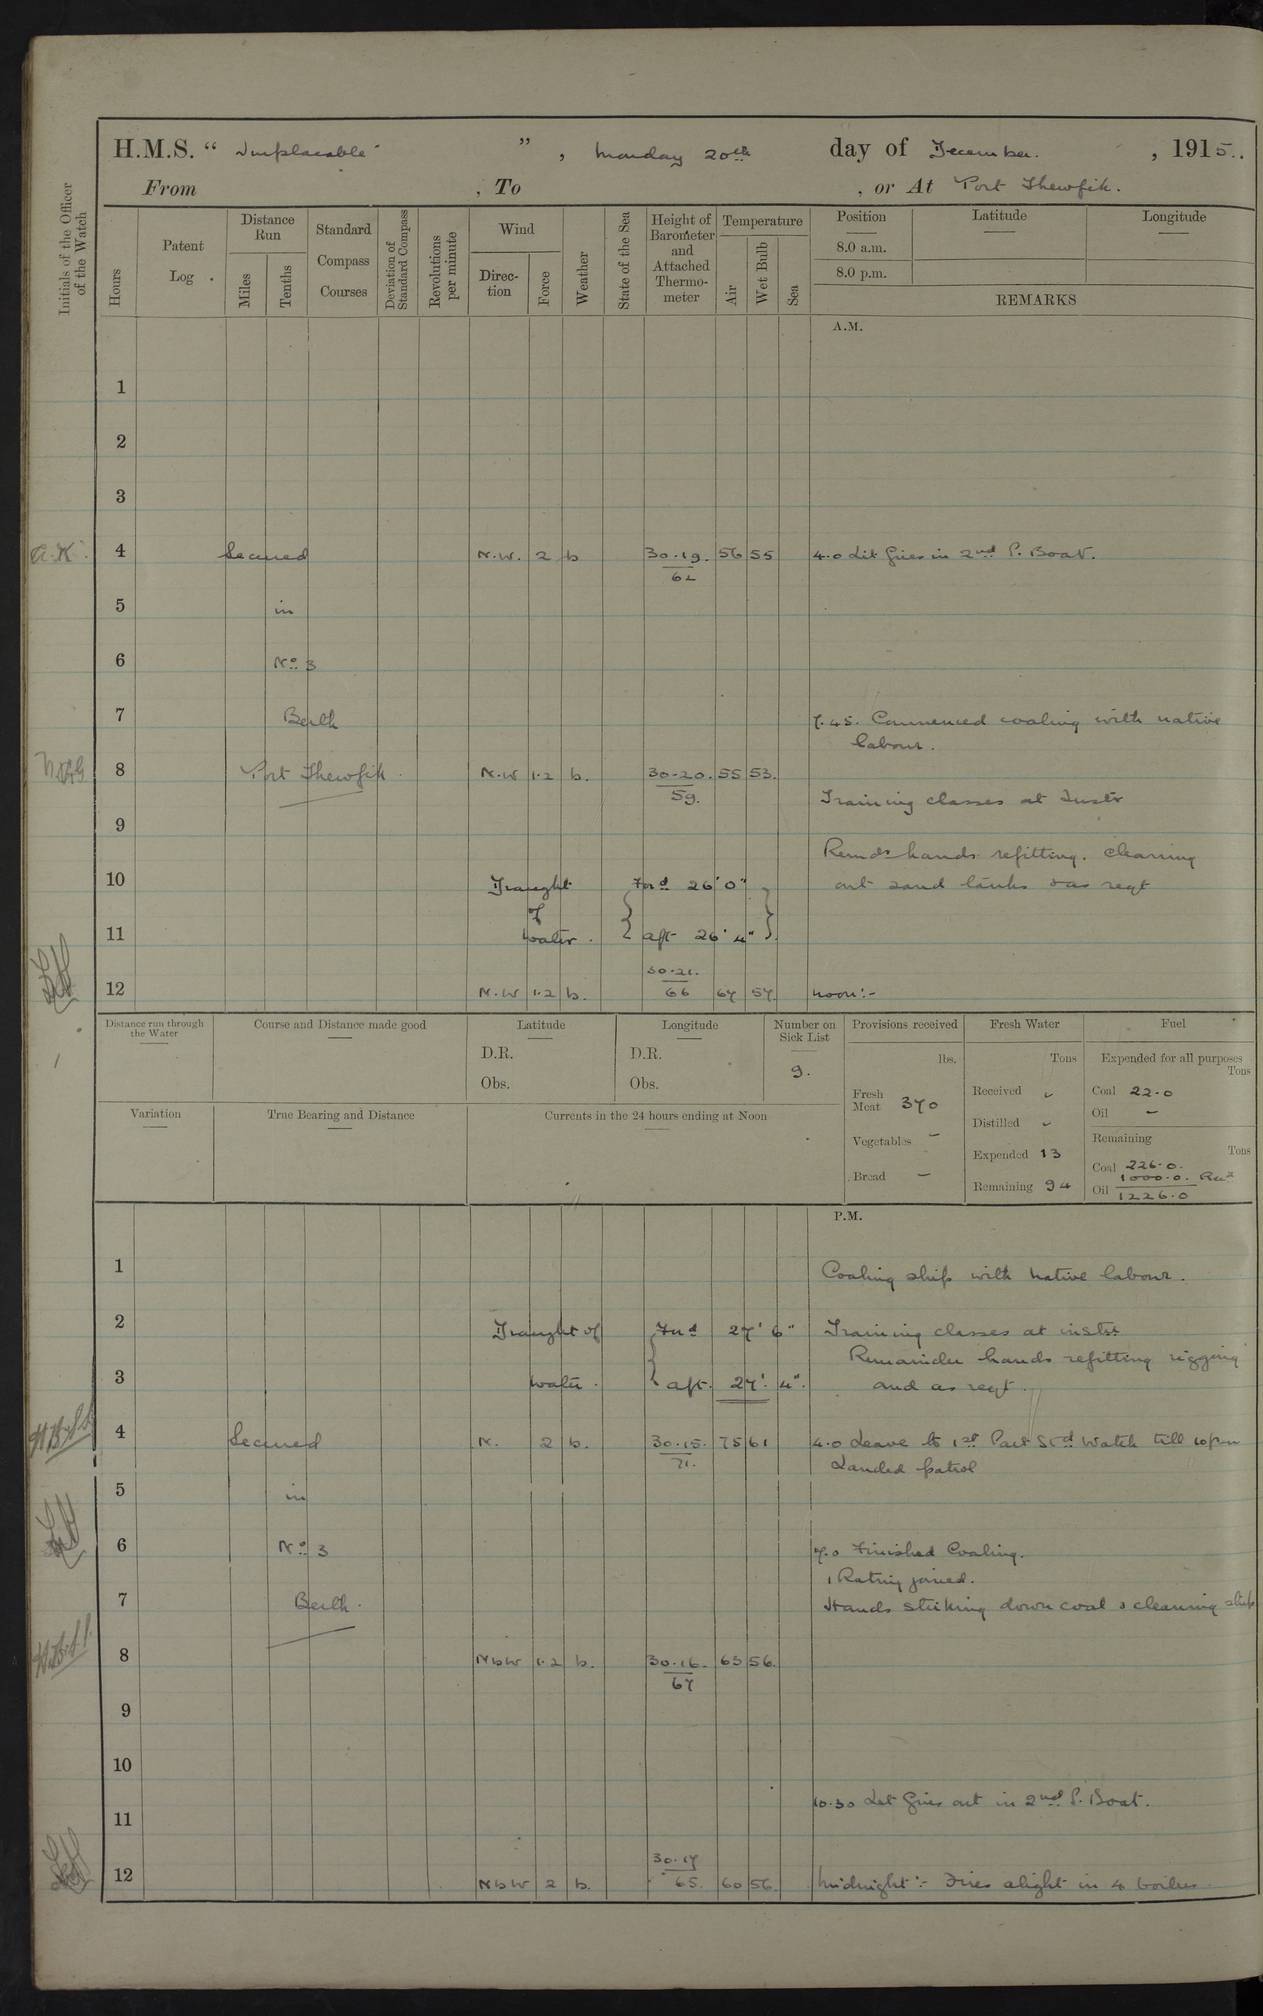 H.M.S. “ Implacable ” , Monday 20th day of December. , 1915.
From , To , or At Port Thewfik.
Initials of the Officer of the Watch
Hours
Patent Log
Distance Run
Miles
Tenths
Standard Compass Courses
Deviation of Standard Compass
Revolutions per minute
Wind
Direc-tion
Force
Weather
State of the Sea
Height of Barometer and Attached Thermo-meter
Temperature
Air
Wet Bulb
Sea
Position
8.0 a.m.
8.0 p.m.
Latitude
Longitude
REMARKS
A.M.
1
2
3
A.K. 4 Secured N.W. 2 b 30.19. 56 55 4.0 Lit fires in 2nd P. Boat.
62
5 in
6 No 3
7 Berth 7.45. Commenced coaling with native
labour.
8 Port Thewfik. N.W 1.2 b. 30.20. 55 53.
59.
Training classes at Instr
9
Remdr hands refitting. Cleaning
10 Draught Ford 26' 0" out sand tanks & as reqt
of
11 water. aft 26' 4"
30.21.
12 N.W 1.2 b. 66 67 57. noon:-
Distance run through the Water
Course and Distance made good
Latitude
D.R.
Obs.
Longitude
D.R.
Obs.
Number on Sick List
9.
Provisions received
lbs.
Fresh Meat 370
Vegetables –
Bread –
Fresh Water
Tons
Received ✓
Distilled ✓
Expended 13
Remaining 94
Fuel
Expended for all purposes
Tons
Coal 22.0
Oil –
Remaining
Tons
Coal 226.0.
1000.0. Recd
Oil 1226.0
Variation
True Bearing and Distance
Currents in the 24 hours ending at Noon
P.M.
1 Coaling ship with native labour.
2 Draught of Ford 27' 6" Training classes at instr
Remainder hands refitting rigging
3 water. aft. 27'. 4". and as reqt.
4 Secured N. 2 b. 30.15. 75 61 4.0 Leave to 1st Part Stbd Watch till 10 pm
71. Landed patrol
5 in
6 No 3 7.0 Finished Coaling.
1 Rating joined.
7 Berth. Hands striking down coal & cleaning ship
8 NbW 1.2 b. 30.16. 63 56.
67
9
10
10.30 Let fires out in 2nd P. Boat.
11
30.17
12 NbW 2 b. 65. 60 56. Midnight:- Fires alight in 4 boilers